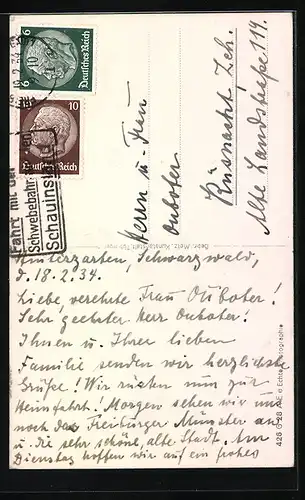 6 Deutsches Reich 6
10 Deutsches Reich
Fahrt mit der
Schwebebahn
Schauinsland
Herrn u. Frau
Ouboter
Küsnacht Zch.
Alte Landstraße 119.
Hinterzarten, Schwarzwald,
d. 18.2.34.
Liebe, verehrte Frau Ouboter!
Sehr geehrter Herr Ouboter!
Ihnen u. Ihrer lieben
Familie senden wir herzlichste
Grüße! Wir rüsten nun zur
Heimfahrt! Morgen sehen wir uns
noch das Freiburger Münster an
u. die sehr schöne, alte Stadt. Am
Dienstag hoffen wir auf ein frohes
Gebr. Metz, Kunstanstalt, Tübingen